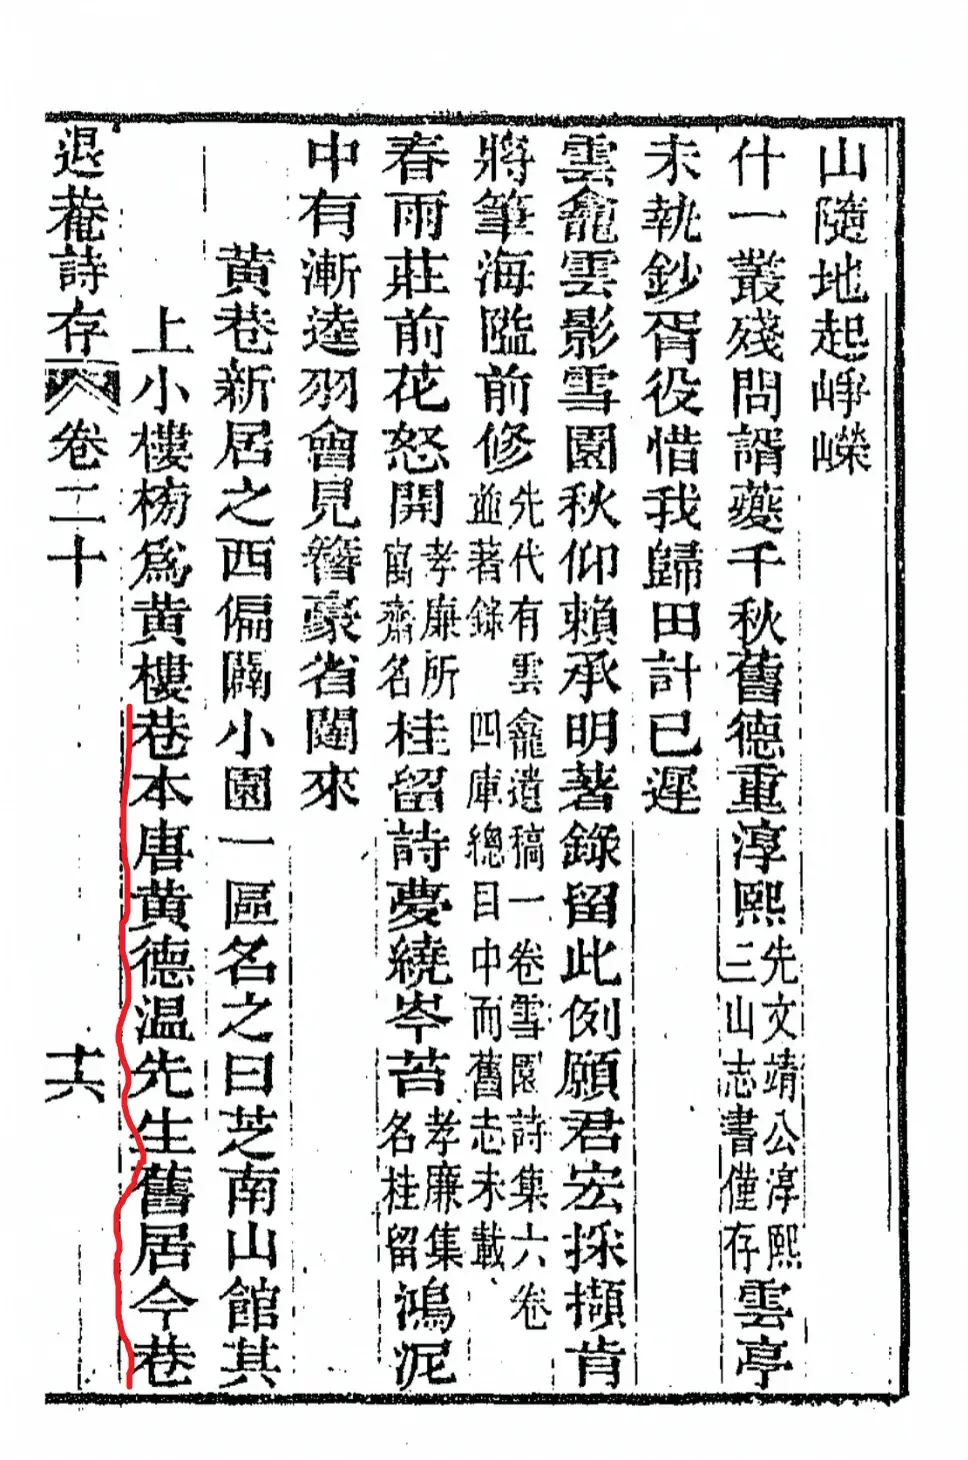 山隨地起崢嶸
什一叢殘問諝夔千秋舊德重淳熙先文靖公淳熙三山志書僅存雲亭
未執鈔胥役惜我歸田計已遲
雲龕雲影雪園秋仰賴承明著錄留此例願君宏採擷肯
將筆海隘前修先代有雲龕遺稿一卷雪園詩集六卷並著錄 四庫總目中而舊志未載
春雨莊前花怒開孝廉所寓齋名桂留詩夢繞岑苔孝廉集名桂留鴻泥
中有漸逵羽會見簪豪省闥來
黃巷新居之西偏闢小園一區名之曰芝南山館其
上小樓榜爲黃樓巷本唐黃德温先生舊居今巷
退菴詩存 卷二十 十六